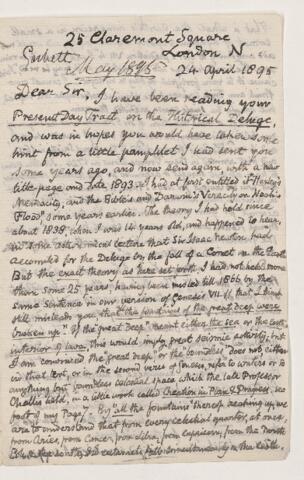 25 Claremont Square
Garbett London N
May 1895 24 April 1895
Dear Sir, I have been reading your
Present Day Tract on the Historical Deluge,
and was in hopes you would have taken some
hint from a little pamphlet I had sent you
some years ago, and now send again with a new
title-page and date 1893. I had at first entitled it Huxley's
Mendacity, and the Bible's and Darwin's Veracity on Noah's
Flood, some years earlier. The theory I had held since
about 1838, when I was 14 years old, and happened to hear,
in some astronomical lecture that Sir Isaac Newton had
accounted for the Deluge by the fall of a Comet on the Earth.
But the exact theory as here set forth I had not held more
than some 25 years, having been misled till 1866 by the
same sentence in our version of Genesis VII. 11, that I think
still misleads you, that "the fountains of the great deep were
broken up". If "the great deep" meant either the sea or the earth's
interior of lava, this would imply great seismic activity, but
I am convinced "the great deep" or "the boundless" does not either
in that text, or in the second verse of Genesis, refer to waters or to
anything but boundless celestial space, which the late Professor
Challis held, in a little work called Creation in Plan & Progress, see
foot of my Page. By "all the fountains thereof breaking up" we
are to understand that from every celestial quarter, at once,
from Aries, from Cancer, from Libra, from Capricorn, from the North